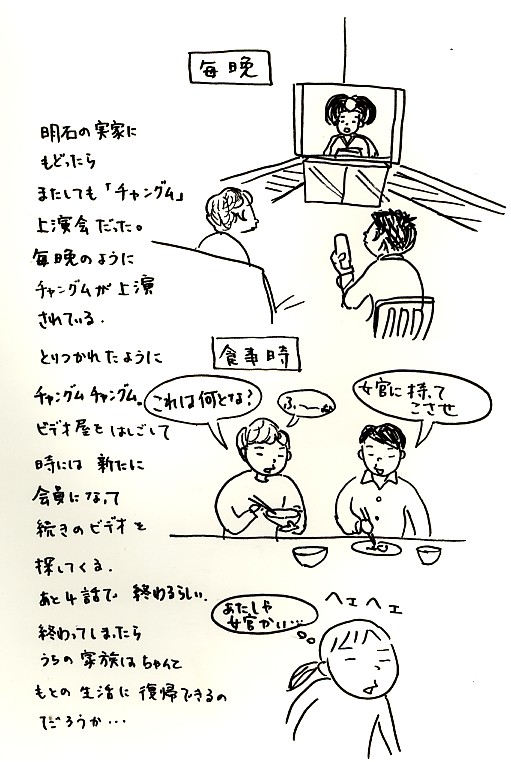 毎晩
明石の実家に
もどったら
またしても「チャングム」
上演会だった。
毎晩のように
チャングムが上演
されている.
とりつかれたように
チャングムチャングム。
ビデオ屋をはしごして
時には新たに
会員になって
続きのビデオを
探してくる.
あと4話で終わるらしい.
終わってしまったら
うちの家族はちゃんと
もとの生活に復帰できるの
だろうか…
食事時
これは何とな?
ふ〜〜ぬ
女官に持って
こさせ
あたしゃ
女官かい…
ヘェヘェ